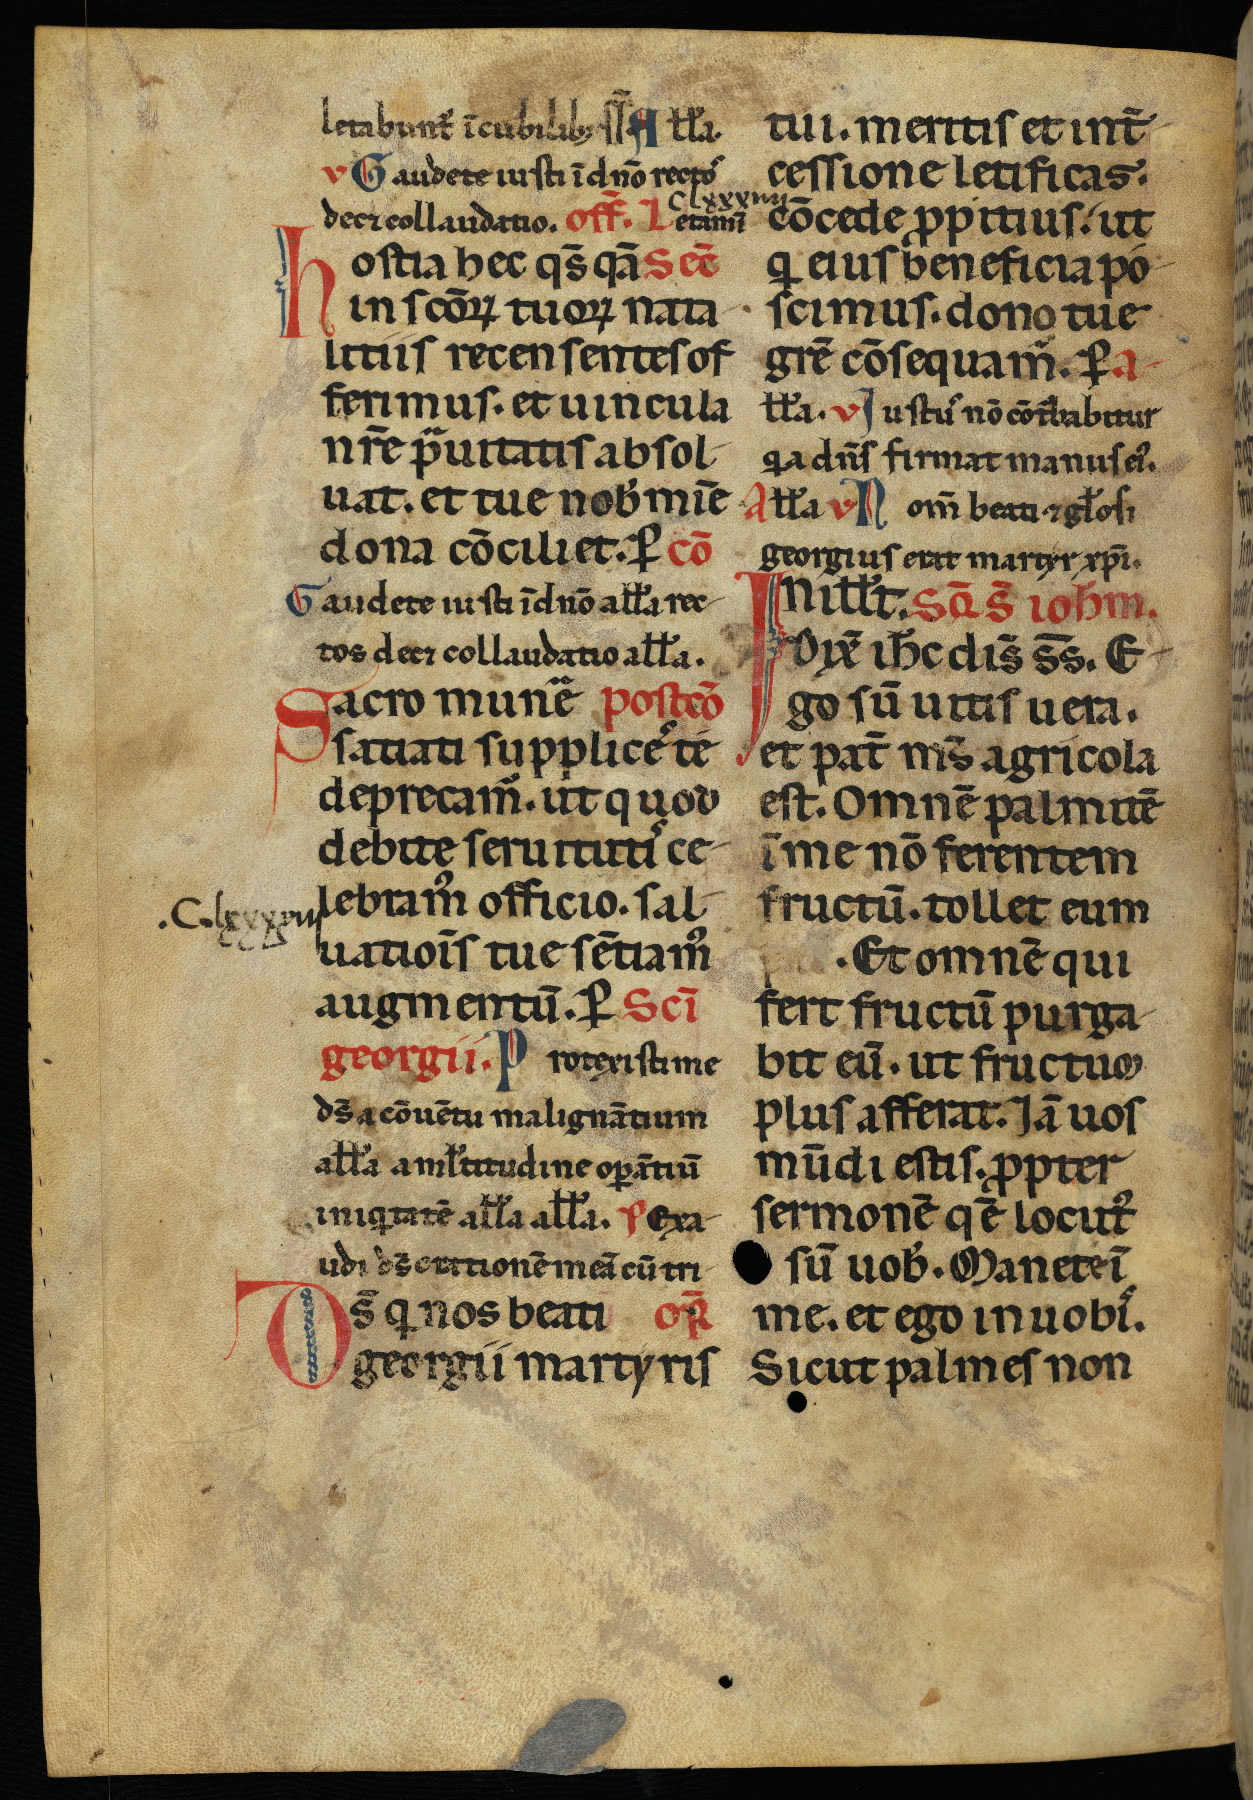 letabunt̄ ī cubilibꝫ ſſ̄. A ll̄a.
v Gaudete iusti ī dn̄o rectoſ
decꝫ collaudatio. off̄. Letamī
Clxxxiiii
hostia hec qs̄ qā Sec̄
in sc̄oꝝ tuoꝝ nata
litiis recensentes of
ferimus. et uincula
nr̄e prauitatis absol-
uat. et tue nob̄ mīe
dona cōciliet. ꝑ cō
Gaudete iusti ī dn̄o all̄a rec-
tos decꝫ collaudatio all̄a.
Sacro munē postcō
satiati supplicēˢ te
deprecam᷒. ut quod
debite seruitutiˢ ce-
lebramꝰ officio. sal-
.C.lxxxviii
uatiōis tue sētiamꝰ
augmentū. ꝑ Scī
georgii. Protexisti me
ds̄ a cōuētu malignātium
all̄a a ml̄titudine oꝑātiū
iniqitatē all̄a all̄a. p̄ Exa
udi ds̄ orationē meā cū tri
Ds̄ q nos beati or̄
georgii martyris
tui. meritis et int̄
cessione letificas.
cōcede ꝓpitius. ut
q eius beneficia po-
scimus. dono tue
gr̄e cōsequam᷒. ꝑ a-
ll̄a. v Iustuˢ nō cōt̄babitur
qa dn̄s firmat manus eiꝰ.
All̄a v Nom̄ beati ⁊ gl̄osi
georgius erat martyr xp̄i.
In ill̄ t̄. Sc̄d̄ s̄ iohm̄.
Dix̄ ih̄c dis̄ ss̄. E-
go sū uitis uera.
et pat̄ ms̄ agricola
est. Omnē palmitē
ī me nō ferentem
fructū. tollet eum
. Et omnē qui
fert fructū purga-
bit eū. ut fructum
plus afferat. Jā uos
mūdi estis. ꝓpter
sermonē qē locutꝰ
sū uob̄. Manete ī
me. et ego in uobiˢ.
Sicut palmes non